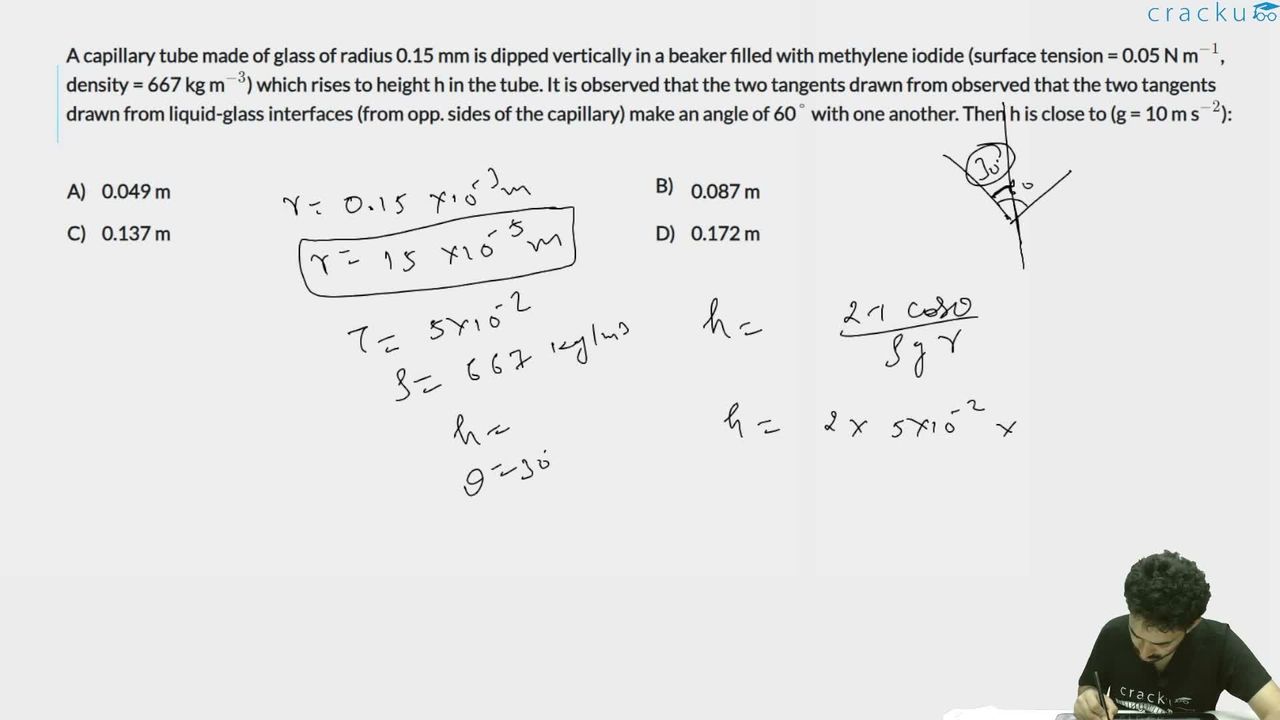 cracku
A capillary tube made of glass of radius 0.15 mm is dipped vertically in a beaker filled with methylene iodide (surface tension = 0.05 N m⁻¹,
density = 667 kg m⁻³) which rises to height h in the tube. It is observed that the two tangents drawn from observed that the two tangents
drawn from liquid-glass interfaces (from opp. sides of the capillary) make an angle of 60° with one another. Then h is close to (g = 10 m s⁻²):
A) 0.049 m
B) 0.087 m
C) 0.137 m
D) 0.172 m
r = 0.15 × 10⁻³ m
r = 15 × 10⁻⁵ m
T = 5×10⁻²
ρ = 667 kg/m³
h =
θ = 30°
30°
h = 2T cosθ / ρ g r
h = 2 × 5×10⁻² ×
crack